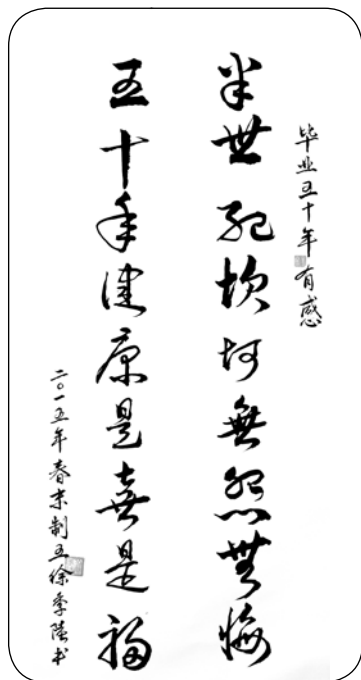 毕业五十年有感
半世纪坎坷無怨無悔
五十年健康是喜是福
二〇一五年春末制五徐季陸书